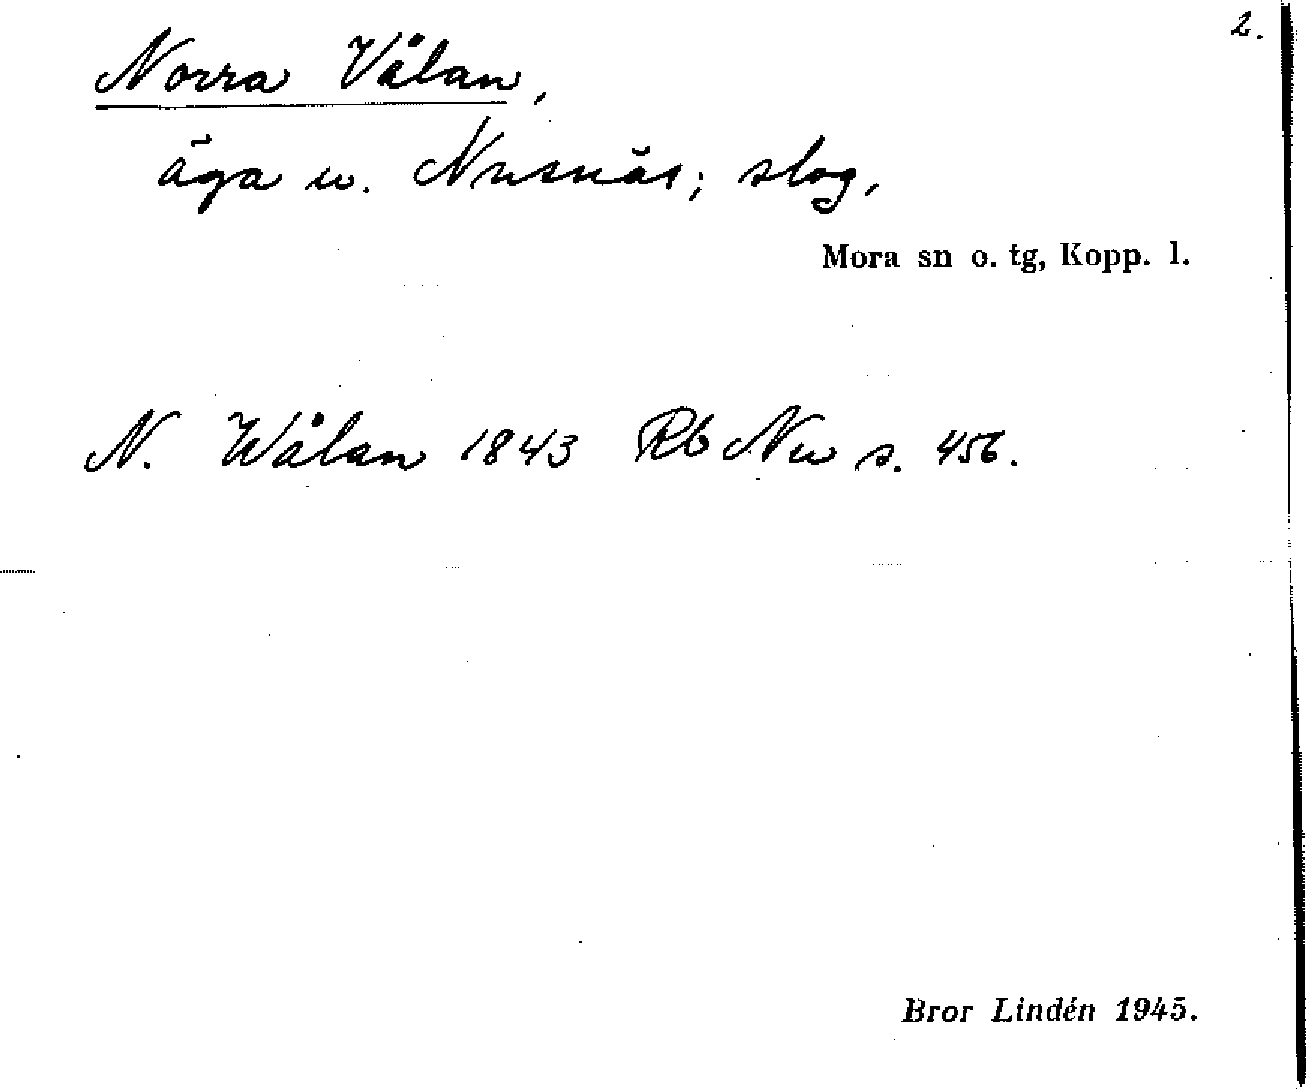 2.
Norra Vålan,
äga u. Nusnäs; slog,
Mora sn o. tg, Kopp. l.
N. Wålan 1843 Rb Nu s. 456.
Bror Lindén 1945.